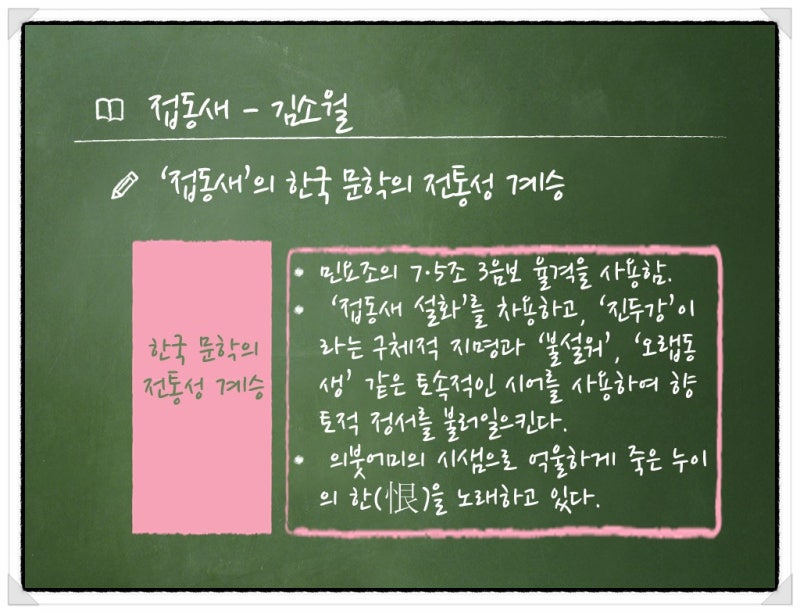 접동새 - 김소월
'접동새'의 한국 문학의 전통성 계승
한국 문학의
전통성 계승
• 민요조의 7·5조 3음보 율격을 사용함.
• '접동새 설화'를 차용하고, '진두강'이
라는 구체적 지명과 '불설워', '오랩동
생' 같은 토속적인 시어를 사용하여 향
토적 정서를 불러일으킨다.
• 의붓어미의 시샘으로 억울하게 죽은 누이
의 한(恨)을 노래하고 있다.